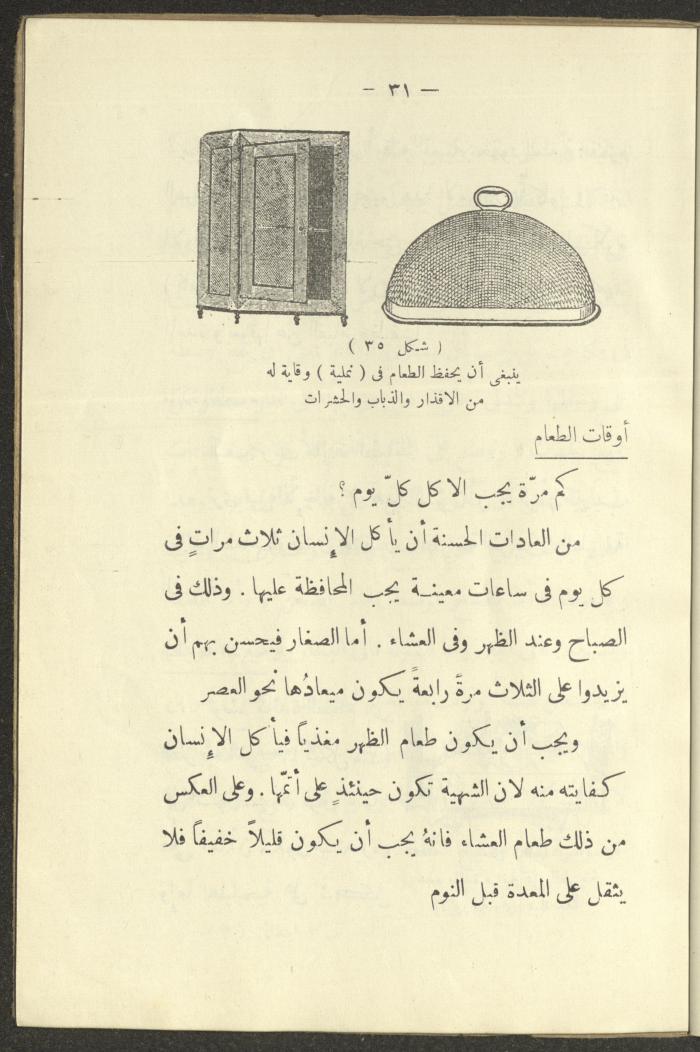 — ٣١ —
( شكل ٣٥ )
ينبغى أن يحفظ الطعام فى ( نملية ) وقاية له
من الاقذار والذباب والحشرات
أوقات الطعام
كم مرّة يجب الاكل كلّ يوم ؟
من العادات الحسنة أن يأكل الإنسان ثلاث مراتٍ فى
كل يوم فى ساعات معينة يجب المحافظة عليها . وذلك فى
الصباح وعند الظهر وفى العشاء . أما الصغار فيحسن بهم أن
يزيدوا على الثلاث مرةً رابعةً يكون ميعادُها نحو العصر
ويجب أن يكون طعام الظهر مغذياً فيأكل الإنسان
كفايته منه لان الشهية تكون حينئذٍ على أتمّها . وعلى العكس
من ذلك طعام العشاء فانهُ يجب أن يكون قليلاً خفيفاً فلا
يثقل على المعدة قبل النوم